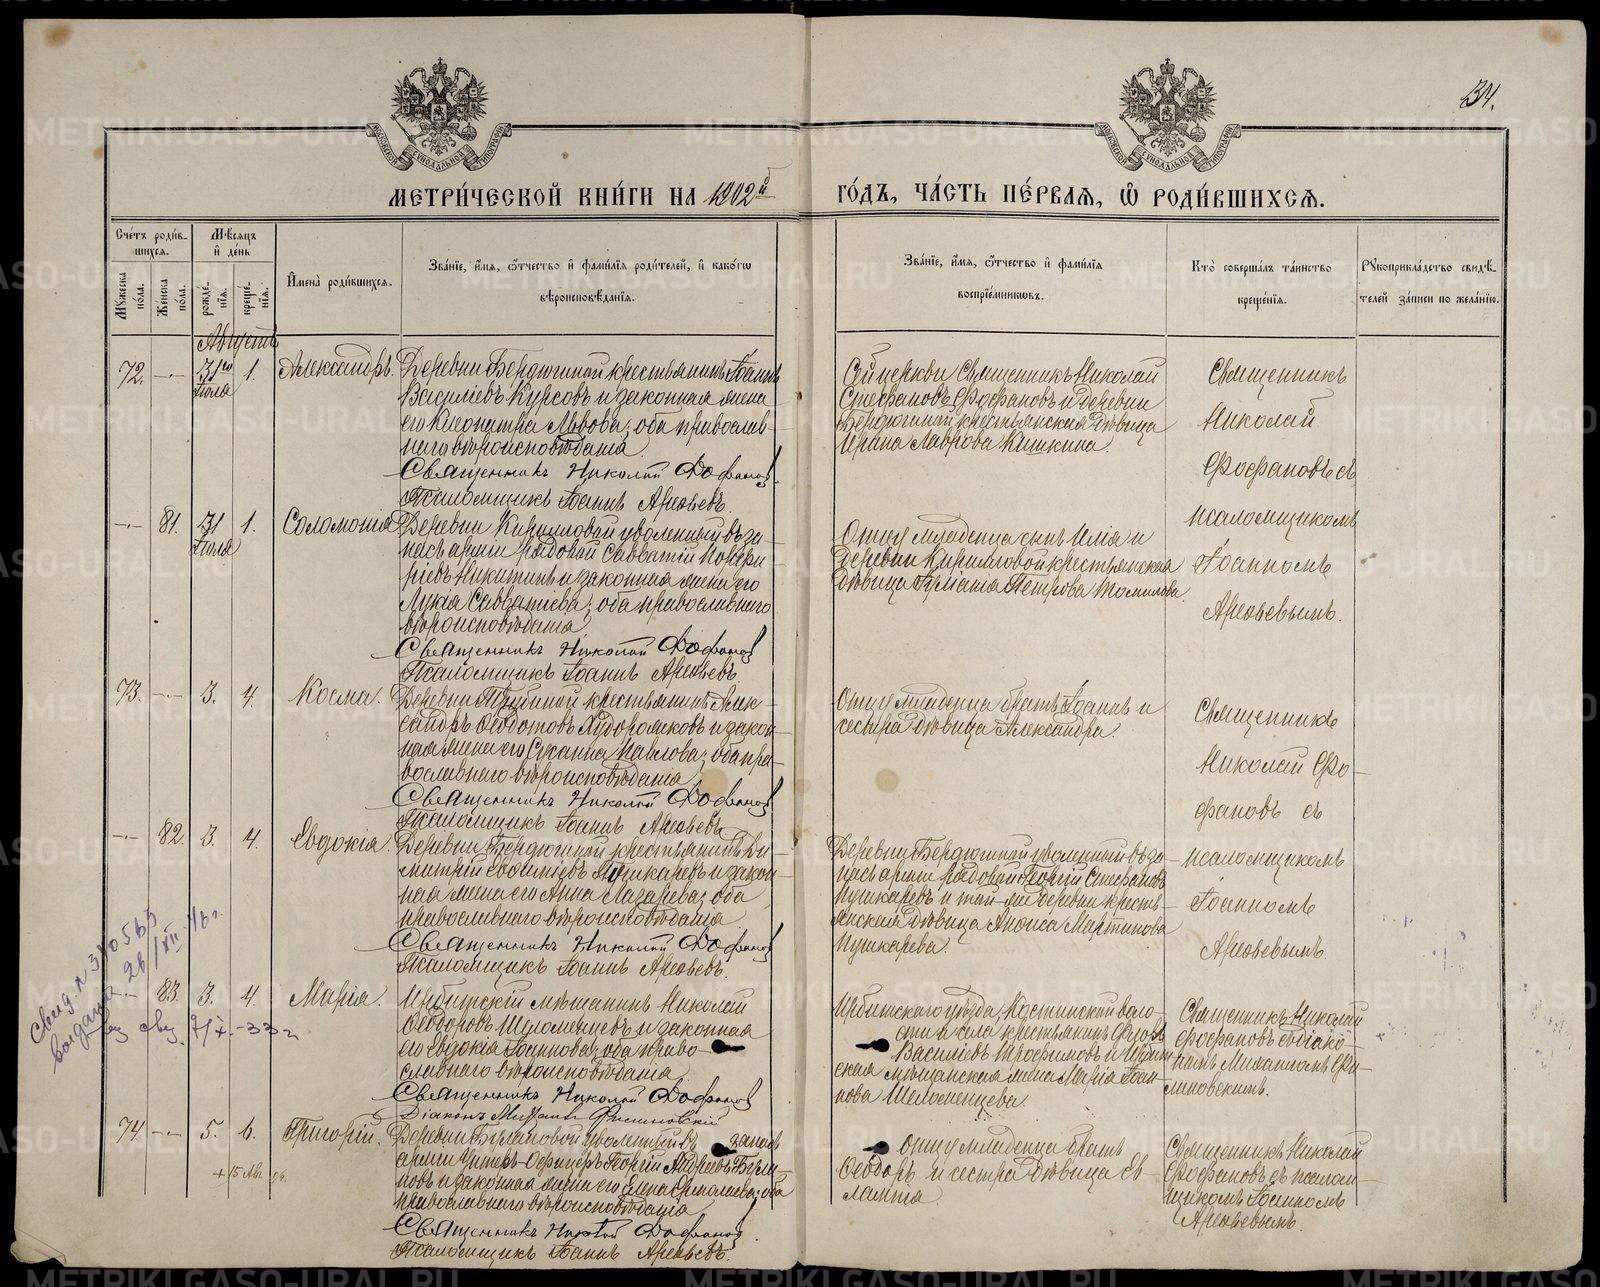 134.
МЕТРИ́ЧЕСКОЙ КНИ́ГИ НА 1902й
ГО́ДЪ, ЧА́СТЬ ПЕ́РВАЯ, Ѡ҆ РОДИ́ВШИХСѦ.
Сче́тъ роди́в-
шихсѧ.
Мꙋ́жеска по́ла.
Же́нска по́ла.
Мѣ́сѧцъ
и҆ де́нь
рожде́-
нїѧ.
креще́-
нїѧ.
И҆мена̀ роди́вшихсѧ.
Зва́нїе, и҆́мѧ, ѻ҆́тчество и҆ фами́лїѧ роди́телей, и҆ како́гѡ
вѣроисповѣ́данїѧ.
Зва́нїе, и҆́мѧ, ѻ҆́тчество и҆ фами́лїѧ
воспрїе́мникѡвъ.
Кто̀ соверша́лъ та́инство
креще́нїѧ.
Рꙋкоприкла́дство свидѣ́-
телей за́писи по жела́нїю.
Августъ
72. -"- 31го Iюля 1. Александръ.
Деревни Бердюгиной крестьянинъ Iоаннъ
Василiевъ Курсовъ и законная жена
его Клеопатра Львова; оба православ-
наго вѣроисповѣданiя.
Священникъ Николай Фофановъ
Псаломщикъ Iоаннъ Арефьевъ.
Сей церкви Священникъ Николай
Стефановъ Фофановъ и деревни
Бердюгиной крестьянская дѣвица
Ирина Лаврова Кишкина.
Священникъ
Николай
Фофановъ съ
псаломщикомъ
Iоанномъ
Арефьевымъ.
-"- 81. 31 Iюля 1. Соломонiя
Деревни Кирилловой уволенный въ за-
пасъ армiи рядовой Савватiй
Никитинъ и законная жена его
Лукiя Савватiева; оба православнаго
вѣроисповѣданiя
Священникъ Николай Фофановъ
Псаломщикъ Iоаннъ Арефьевъ.
Отца младенца сынъ Илiя и
деревни Кирилловой крестьянская
дѣвица Петрова Томилова.
73. -"- 3. 4. Косма.
Деревни крестьянинъ Алек-
сандръ Ѳедотовъ Худорожковъ и закон-
ная жена его Сусанна Павлова; оба пра-
вославнаго вѣроисповѣданiя
Священникъ Николай Фофановъ
Псаломщикъ Iоаннъ Арефьевъ
Отца младенца братъ Iоаннъ и
сестра дѣвица Александра.
Священникъ
Николай Фо-
фановъ съ
псаломщикомъ
Iоанномъ
Арефьевымъ.
-"- 82. 3. 4. Евдокiя.
Деревни Бердюгиной крестьянинъ Ди-
митрiй Пушкаревъ и закон-
ная жена его Анна Лазарева; оба
православнаго вѣроисповѣданiя
Священникъ Николай Фофановъ
Псаломщикъ Iоаннъ Арефьевъ.
Деревни Бердюгиной уволенный въ за-
пасъ армiи рядовой Георгiй Стефановъ
Пушкаревъ и той-же деревни кресть-
янская дѣвица Анфиса Мартинова
Пушкарева.
-"- 83. 3. 4. Марiя.
Ирбитскiй мѣщанинъ Николай
Ѳеодоровъ Шеломенцевъ и законная
его Евдокiя Iоаннова; оба право-
славнаго вѣроисповѣданiя
Священникъ Николай Фофановъ
Дiаконъ Михаилъ Филиновскiй
Ирбитскаго уѣзда, Костинской воло-
сти и села крестьянинъ
Василiевъ Трофимовъ и Ирбит-
ская мѣщанская жена Марiя Iоан-
нова Шеломенцева.
Священникъ Николай
Фофановъ съ дiако-
номъ Михаиломъ Фи-
линовскимъ.
74. -"- 5. 6. Григорiй.
+ 15 Авг.
Деревни Булановой уволенный въ запасъ
армiи Унтеръ-Офицеръ Георгiй Андреевъ Була-
новъ и законная жена его Елена Ермолаева; оба
православнаго вѣроисповѣданiя
Священникъ Николай Фофановъ
Псаломщикъ Iоаннъ Арефьевъ.
Отца младенца братъ
Ѳеодоръ и сестра дѣвица Ев-
лампiя
Священникъ Николай
Фофановъ съ псалом-
щикомъ Iоанномъ
Арефьевымъ.